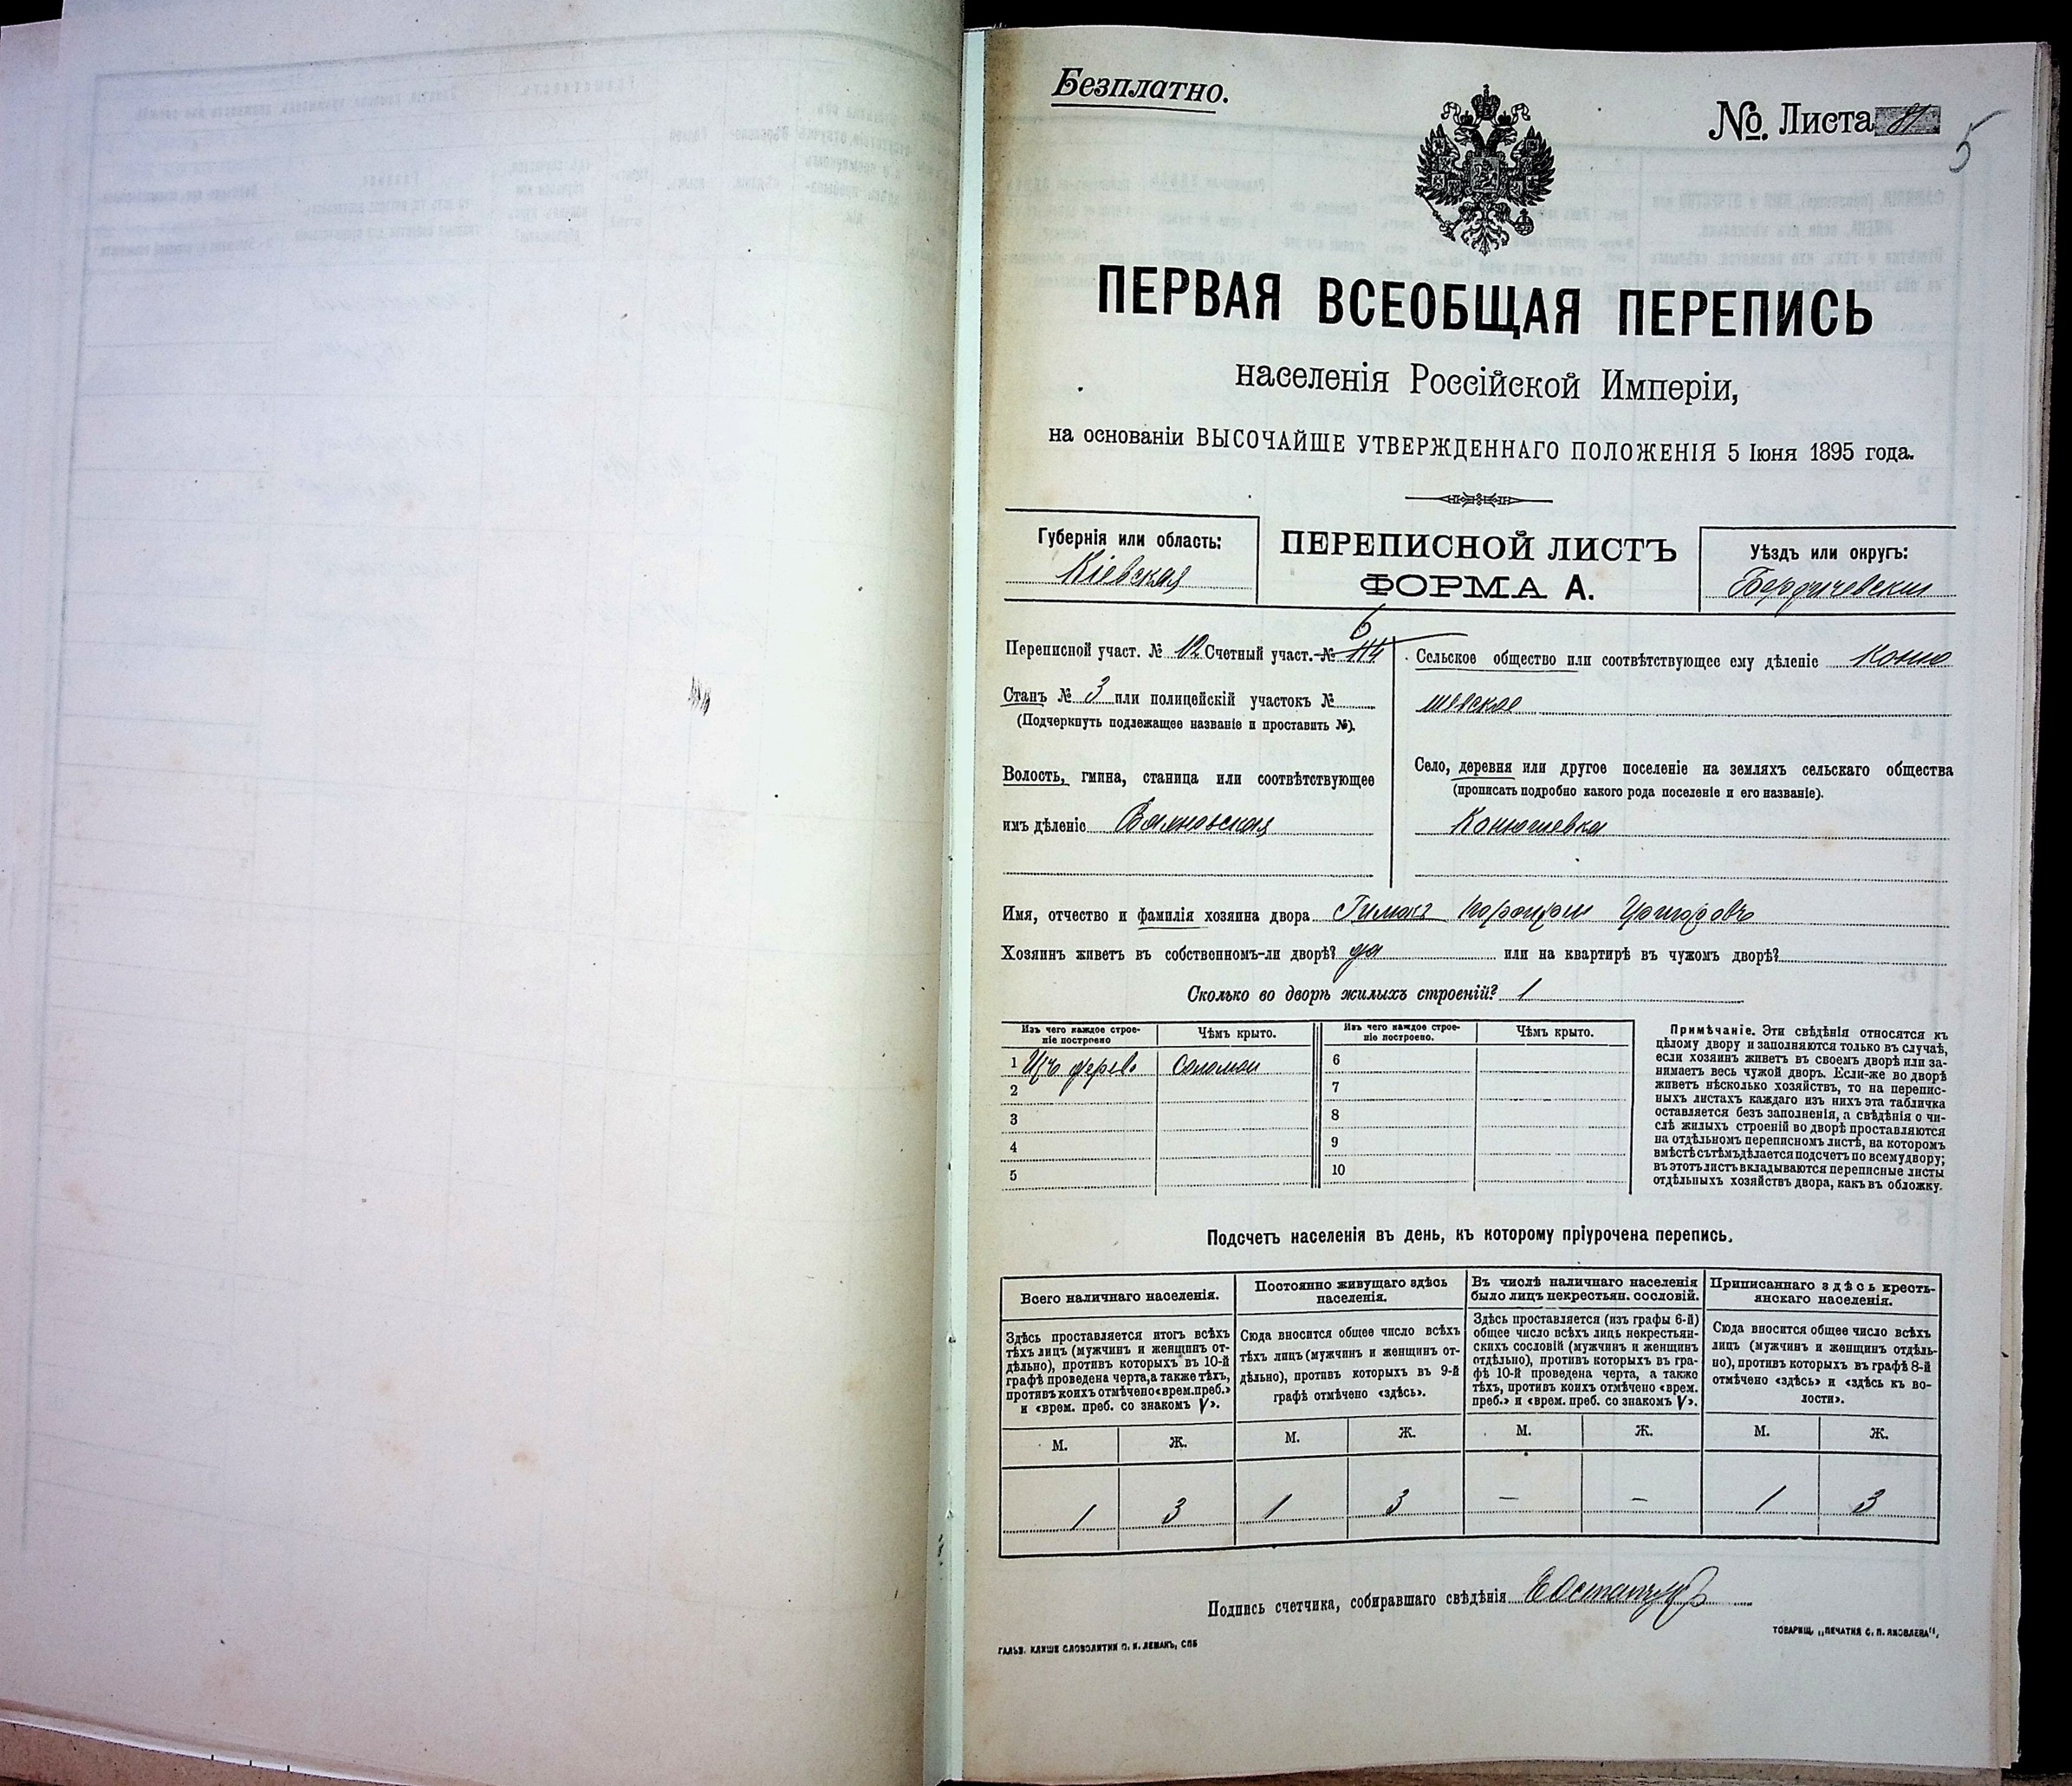 Безплатно.
№. Листа 81
5
ПЕРВАЯ ВСЕОБЩАЯ ПЕРЕПИСЬ
населенія Россійской Имперіи,
на основаніи ВЫСОЧАЙШЕ УТВЕРЖДЕННАГО ПОЛОЖЕНІЯ 5 Іюня 1895 года.
Губернія или область:
Кіевская
ПЕРЕПИСНОЙ ЛИСТЪ
ФОРМА А.
Уѣздъ или округъ:
Бердичевски
Переписной участ. № 12 Счетный участ. № 6
Станъ № 3 или полицейскій участокъ №
(Подчеркнуть подлежащее названіе и проставить №).
Волость, гмина, станица или соотвѣтствующее
имъ дѣленіе
Сельское общество или соотвѣтствующее ему дѣленіе Коню
шевское
Село, деревня или другое поселеніе на земляхъ сельскаго общества
(прописать подробно какого рода поселеніе и его названіе).
Конюшевка
Имя, отчество и фамилія хозяина двора
Хозяинъ живетъ въ собственномъ-ли дворѣ? да или на квартирѣ въ чужомъ дворѣ?
Сколько во дворѣ жилыхъ строеній? 1
Изъ чего каждое строе-
ніе построено
Чѣмъ крыто.
Изъ чего каждое строе-
ніе построено.
Чѣмъ крыто.
1 Изъ дерева Соломой
2
3
4
5
6
7
8
9
10
Примѣчаніе. Эти свѣдѣнія относятся къ
цѣлому двору и заполняются только въ случаѣ,
если хозяинъ живетъ въ своемъ дворѣ или за-
нимаетъ весь чужой дворъ. Если-же во дворѣ
живетъ нѣсколько хозяйствъ, то на перепис-
ныхъ листахъ каждаго изъ нихъ эта табличка
оставляется безъ заполненія, а свѣдѣнія о чи-
слѣ жилыхъ строеній во дворѣ проставляются
на отдѣльномъ переписномъ листѣ, на которомъ
вмѣстѣ съ тѣмъ дѣлается подсчетъ по всему двору;
въ этотъ листъ вкладываются переписные листы
отдѣльныхъ хозяйствъ двора, какъ въ обложку.
Подсчетъ населенія въ день, къ которому пріурочена перепись.
Всего наличнаго населенія.
Здѣсь проставляется итогъ всѣхъ
тѣхъ лицъ (мужчинъ и женщинъ от-
дѣльно), противъ которыхъ въ 10-й
графѣ проведена черта, а также тѣхъ,
противъ коихъ отмѣчено «врем. преб.»
и «врем. преб. со знакомъ V».
Постоянно живущаго здѣсь
населенія.
Сюда вносится общее число всѣхъ
тѣхъ лицъ (мужчинъ и женщинъ от-
дѣльно), противъ которыхъ въ 9-й
графѣ отмѣчено «здѣсь».
Въ числѣ наличнаго населенія
было лицъ некрестьян. сословій.
Здѣсь проставляется (изъ графы 6-й)
общее число всѣхъ лицъ некрестьян-
скихъ сословій (мужчинъ и женщинъ
отдѣльно), противъ которыхъ въ гра-
фѣ 10-й проведена черта, а также
тѣхъ, противъ коихъ отмѣчено «врем.
преб.» и «врем. преб. со знакомъ V».
Приписаннаго здѣсь кресть-
янскаго населенія.
Сюда вносится общее число всѣхъ
лицъ (мужчинъ и женщинъ отдѣль-
но), противъ которыхъ въ графѣ 8-й
отмѣчено «здѣсь» и «здѣсь къ во-
лости».
М. Ж. М. Ж. М. Ж. М. Ж.
1 3 1 3 — — 1 3
Подпись счетчика, собиравшаго свѣдѣнія
ГАЛЬВ. КЛИШЕ СЛОВОЛИТНИ О. И. ЛЕМАНЪ, СПБ
ТОВАРИЩ. „ПЕЧАТНЯ С. П. ЯКОВЛЕВА“.